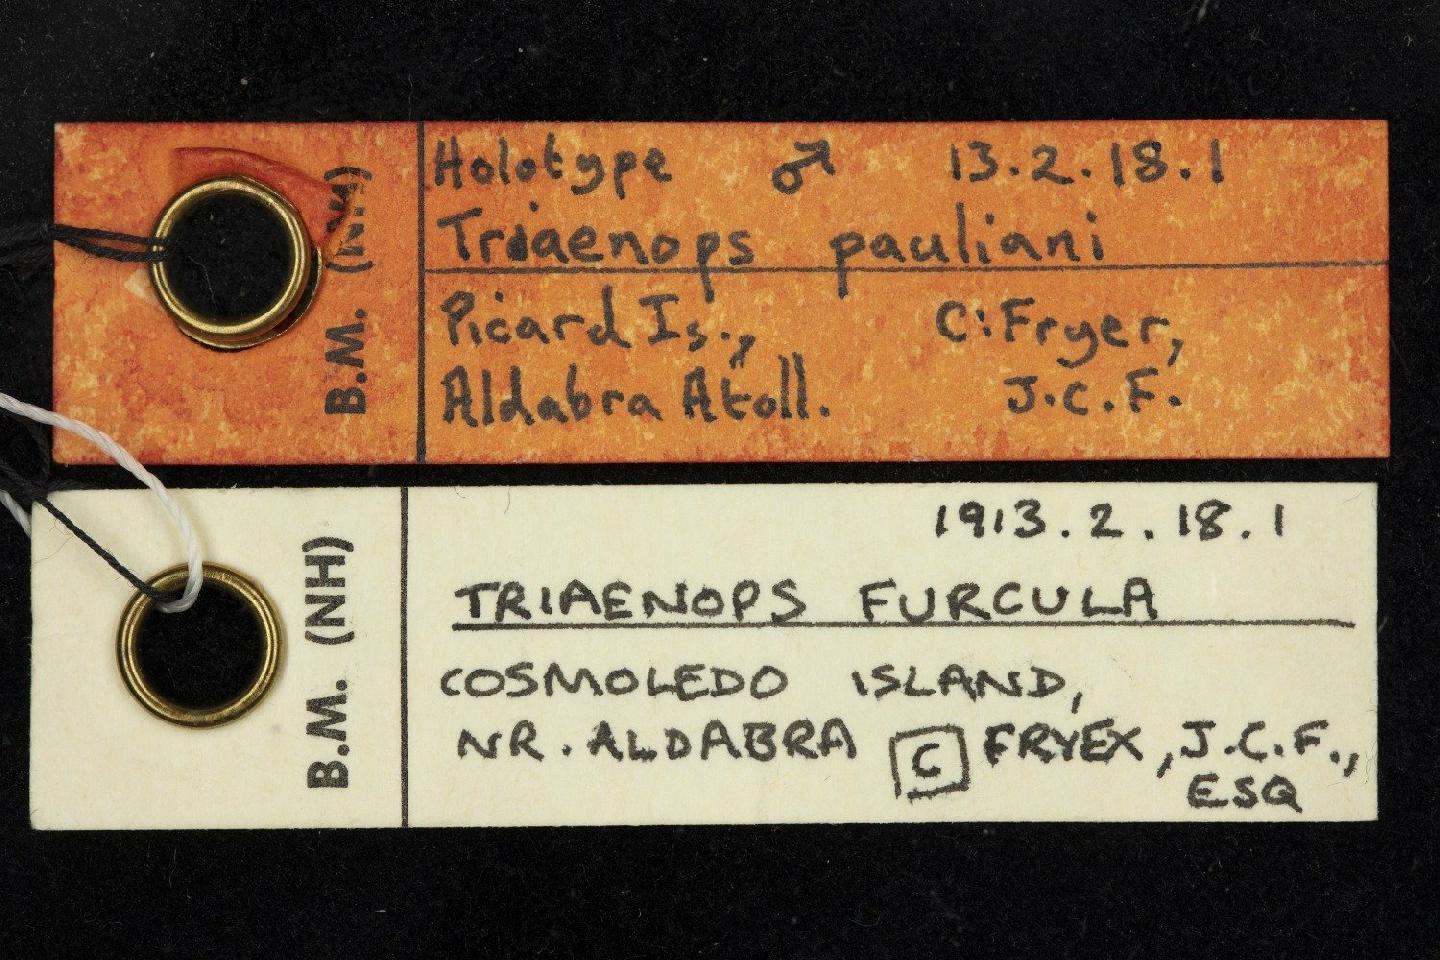 B.M. (NH)
Holotype ♂ 13.2.18.1
Triaenops pauliani
Picard Is.,
Aldabra Atoll.
C:Fryer,
J.C.F.
B.M. (NH)
1913.2.18.1
TRIAENOPS FURCULA
COSMOLEDO ISLAND,
NR. ALDABRA C FRYEX, J.C.F.,
ESQ